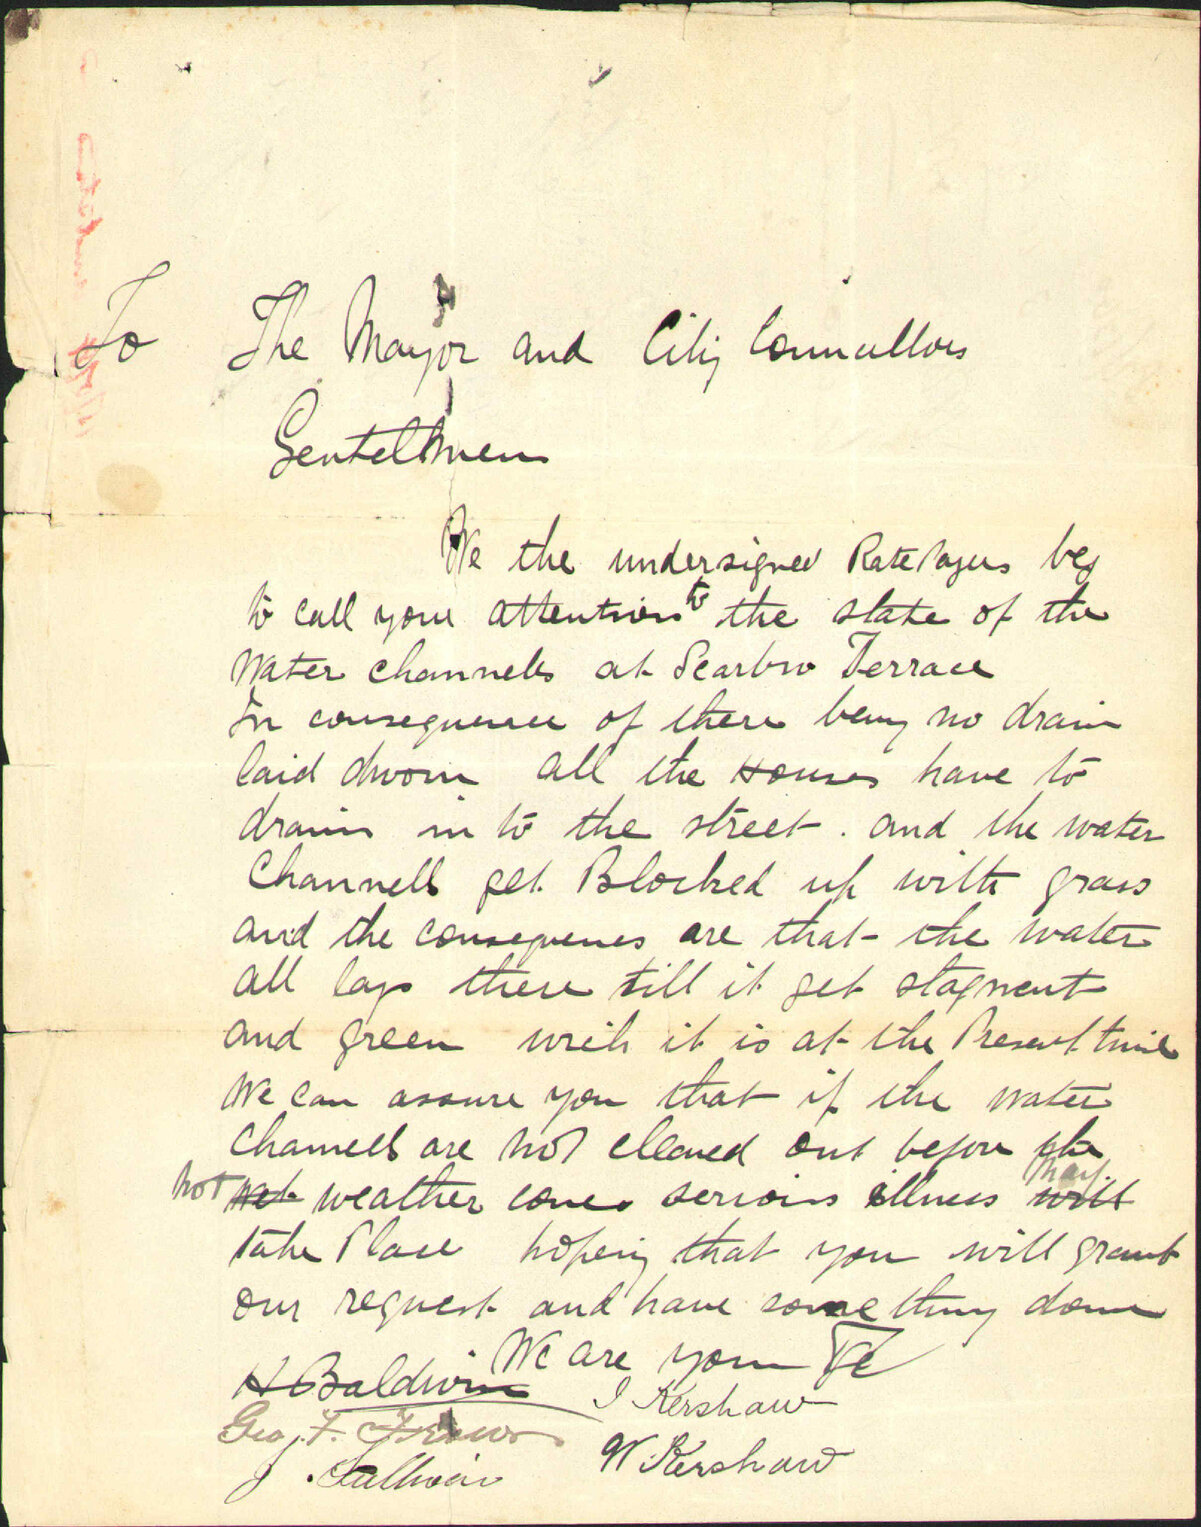 To The Mayor and City Councillors
Gentelmen
We the undersigned Ratepayers beg
to call your attention to the state of the
Water channels at Scarbro Terrace
In consequence of there being no drain
laid dwown all the Houses have to
drain in to the street. and the water
Channells get Blocked up with grass
and the consequences are that the water
all lays there till it get stagnent
and green wich it is at the Present time
We can assure you that if the water
channels are not cleaned out before the
hot wet weather comes serious illness may will
take Place hoping that you will grant
our request and have something done
We are your
H Baldwin J Kershaw
Geo. F.
J. W. Kershaw